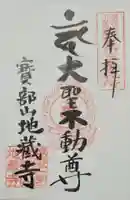 奉拝
大聖不動尊
寳部山地蔵寺